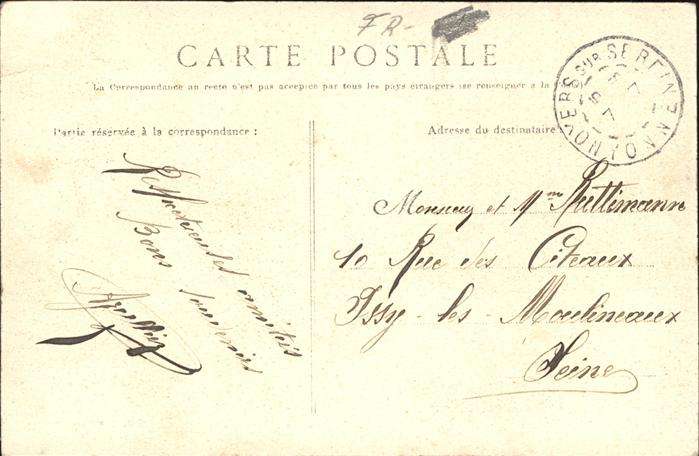 FR-
CARTE POSTALE
La Correspondance au recto n'est pas acceptée par tous les pays étrangers (se renseigner à la
Partie réservée à la correspondance :
Adresse du destinataire
NOYERS SUR SEREIN YONNE
Respectueuses amitiés
Bons souvenirs
Monsieur et Mme Ruttimann
10 Rue des Citeaux
Issy-les-Moulineaux
Seine